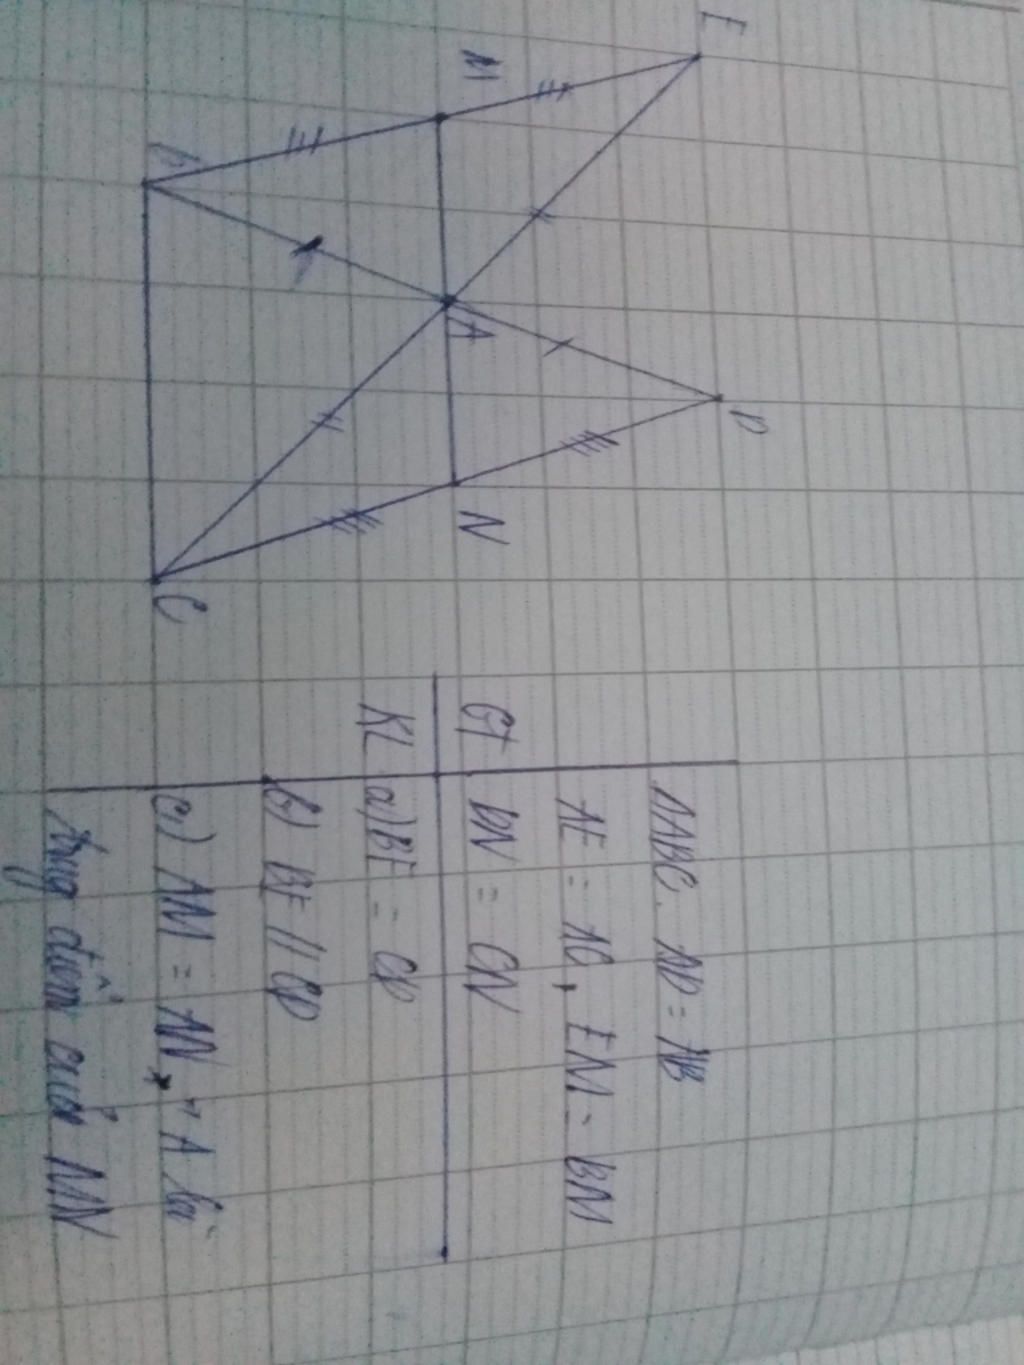 E
D
M
A
N
B
C
ΔABC. AD = AB
AE = AC, EM = BM
GT DN = CN
KL a) BE = CD
b) BE // CD
c) AM = AN, A là
trung điểm của MN